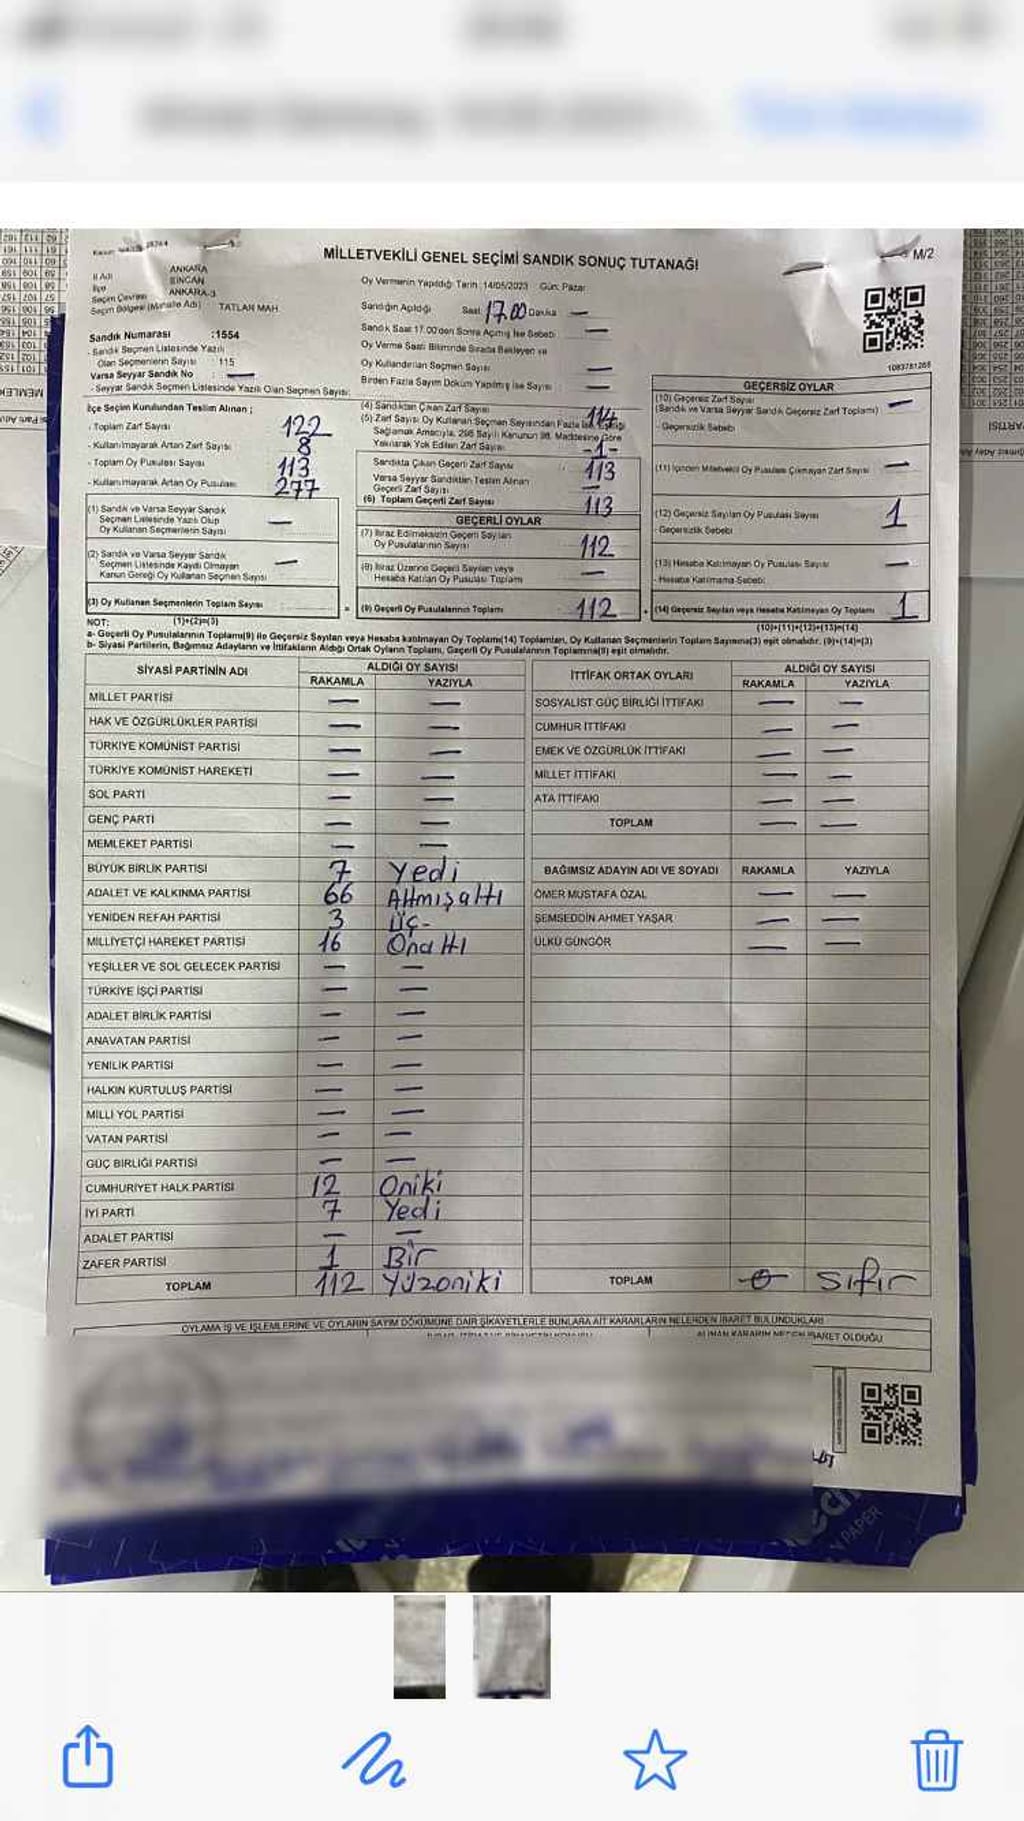 MİLLETVEKİLİ GENEL SEÇİMİ SANDIK SONUÇ TUTANAĞI
M/2
İl Adı ANKARA
İlçe SİNCAN
Seçim Çevresi ANKARA-3
Seçim Bölgesi (Mahalle Adı) TATLAR MAH.
Sandık Numarası :1554
- Sandık Seçmen Listesinde Yazılı
Olan Seçmenlerin Sayısı : 115
Varsa Seyyar Sandık No : —
- Seyyar Sandık Seçmen Listesinde Yazılı Olan Seçmen Sayısı:
Oy Vermenin Yapıldığı Tarih :14/05/2023 Gün: Pazar
Sandığın Açıldığı Saat 17.00 Dakika —
Sandık Saat 17.00'den Sonra Açılmış İse Sebebi : —
Oy Verme Saati Bitiminde Sırada Bekleyen ve
Oy Kullandırılan Seçmen Sayısı : —
Birden Fazla Sayım Döküm Yapılmış İse Sayısı : —
1083781265
İlçe Seçim Kurulundan Teslim Alınan ;
- Toplam Zarf Sayısı : 122
- Kullanılmayarak Artan Zarf Sayısı : 8
- Toplam Oy Pusulası Sayısı : 113
- Kullanılmayarak Artan Oy Pusulası : 277
(1) Sandık ve Varsa Seyyar Sandık
Seçmen Listesinde Yazılı Olup
Oy Kullanan Seçmenlerin Sayısı : —
(2) Sandık ve Varsa Seyyar Sandık
Seçmen Listesinde Kaydı Olmayan
Kanun Gereği Oy Kullanan Seçmen Sayısı : —
(3) Oy Kullanan Seçmenlerin Toplam Sayısı
(4) Sandıktan Çıkan Zarf Sayısı : 114
(5) Zarf Sayısı Oy Kullanan Seçmen Sayısından Fazla İse Eşitliği
Sağlamak Amacıyla, 298 Sayılı Kanunun 98. Maddesine Göre
Yakılarak Yok Edilen Zarf Sayısı : -1-
Sandıkta Çıkan Geçerli Zarf Sayısı : 113
Varsa Seyyar Sandıktan Teslim Alınan
Geçerli Zarf Sayısı : —
(6) Toplam Geçerli Zarf Sayısı : 113
GEÇERLİ OYLAR
(7) İtiraz Edilmeksizin Geçerli Sayılan
Oy Pusulalarının Sayısı : 112
(8) İtiraz Üzerine Geçerli Sayılan veya
Hesaba Katılan Oy Pusulası Toplamı : —
(9) Geçerli Oy Pusulalarının Toplamı : 112
GEÇERSİZ OYLAR
(10) Geçersiz Zarf Sayısı
(Sandık ve Varsa Seyyar Sandık Geçersiz Zarf Toplamı) : —
- Geçersizlik Sebebi:
(11) İçinden Milletvekili Oy Pusulası Çıkmayan Zarf Sayısı : —
(12) Geçersiz Sayılan Oy Pusulası Sayısı : 1
- Geçersizlik Sebebi:
(13) Hesaba Katılmayan Oy Pusulası Sayısı : —
- Hesaba Katılmama Sebebi:
(14) Geçersiz Sayılan veya Hesaba Katılmayan Oy Toplamı : 1
NOT: (1)+(2)=(3) (10)+(11)+(12)+(13)=(14)
a- Geçerli Oy Pusulalarının Toplamı(9) ile Geçersiz Sayılan veya Hesaba katılmayan Oy Toplamı(14) Toplamları, Oy Kullanan Seçmenlerin Toplam Sayısına(3) eşit olmalıdır. (9)+(14)=(3)
b- Siyasi Partilerin, Bağımsız Adayların ve İttifakların Aldığı Ortak Oyların Toplamı, Geçerli Oy Pusulalarının Toplamına(9) eşit olmalıdır.
SİYASİ PARTİNİN ADI ALDIĞI OY SAYISI
RAKAMLA YAZIYLA
MİLLET PARTİSİ — —
HAK VE ÖZGÜRLÜKLER PARTİSİ — —
TÜRKİYE KOMÜNİST PARTİSİ — —
TÜRKİYE KOMÜNİST HAREKETİ — —
SOL PARTİ — —
GENÇ PARTİ — —
MEMLEKET PARTİSİ — —
BÜYÜK BİRLİK PARTİSİ 7 Yedi
ADALET VE KALKINMA PARTİSİ 66 Altmışaltı
YENİDEN REFAH PARTİSİ 3 Üç-
MİLLİYETÇİ HAREKET PARTİSİ 16 Onaltı
YEŞİLLER VE SOL GELECEK PARTİSİ — —
TÜRKİYE İŞÇİ PARTİSİ — —
ADALET BİRLİK PARTİSİ — —
ANAVATAN PARTİSİ — —
YENİLİK PARTİSİ — —
HALKIN KURTULUŞ PARTİSİ — —
MİLLİ YOL PARTİSİ — —
VATAN PARTİSİ — —
GÜÇ BİRLİĞİ PARTİSİ — —
CUMHURİYET HALK PARTİSİ 12 Oniki
İYİ PARTİ 7 Yedi
ADALET PARTİSİ — —
ZAFER PARTİSİ 1 Bir
TOPLAM 112 Yüzoniki
İTTİFAK ORTAK OYLARI ALDIĞI OY SAYISI
RAKAMLA YAZIYLA
SOSYALİST GÜÇ BİRLİĞİ İTTİFAKI — —
CUMHUR İTTİFAKI — —
EMEK VE ÖZGÜRLÜK İTTİFAKI — —
MİLLET İTTİFAKI — —
ATA İTTİFAKI — —
TOPLAM — —
BAĞIMSIZ ADAYIN ADI VE SOYADI RAKAMLA YAZIYLA
ÖMER MUSTAFA ÖZAL — —
ŞEMSEDDİN AHMET YAŞAR — —
ÜLKÜ GÜNGÖR — —
TOPLAM 0 Sıfır
OYLAMA İŞ VE İŞLEMLERİNE VE OYLARIN SAYIM DÖKÜMÜNE DAİR ŞİKAYETLERLE BUNLARA AİT KARARLARIN NELERDEN İBARET BULUNDUKLARI
ALINAN KARARIN NEDEN İBARET OLDUĞU
PAPER